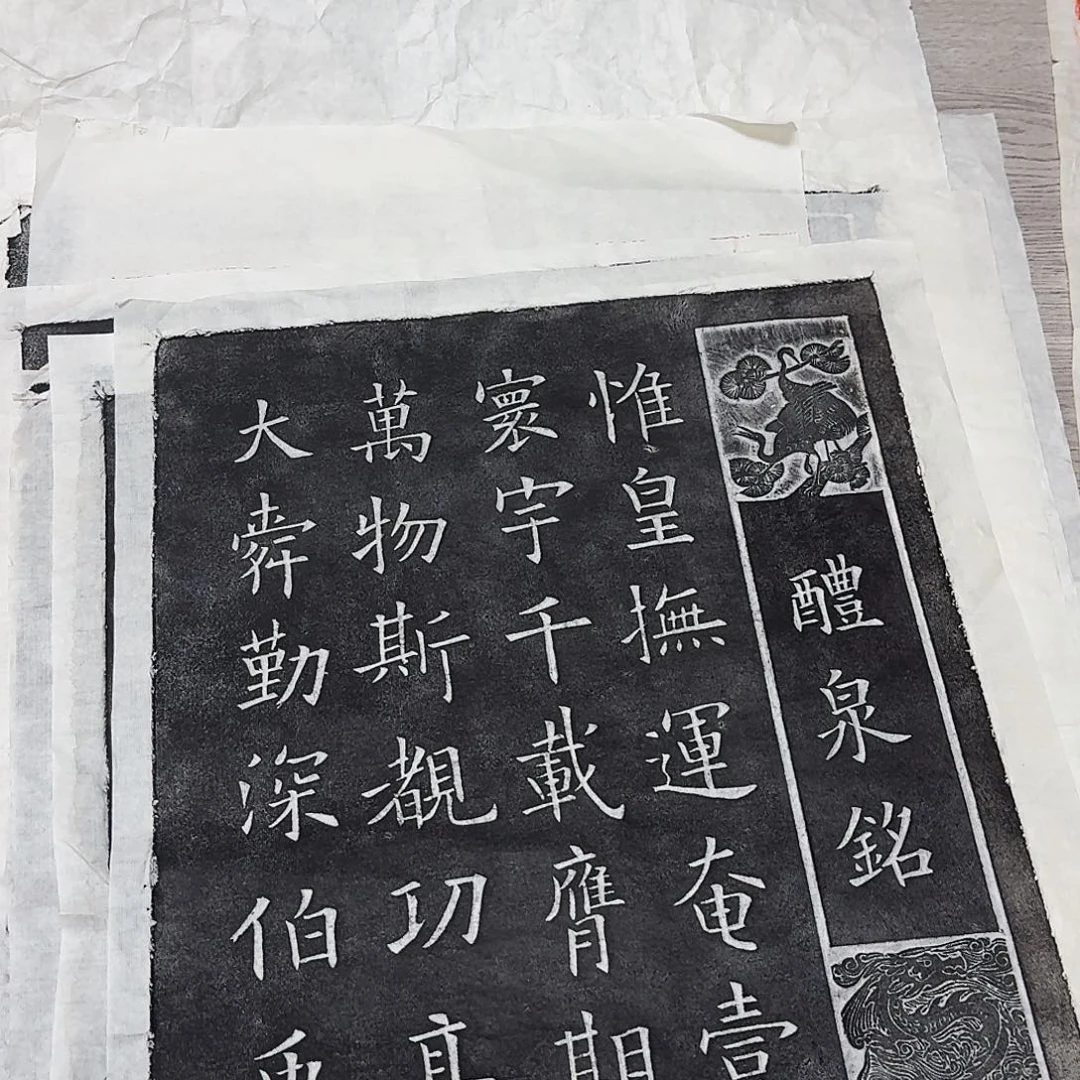 醴泉銘
惟皇撫運奄壹
寰宇千載膺期
萬物斯覩功高
大舜勤深伯